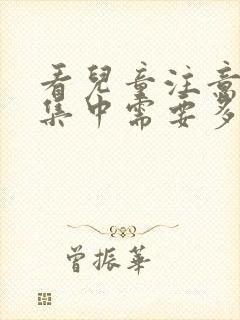 看兒童注意
集中需要多
曾振華